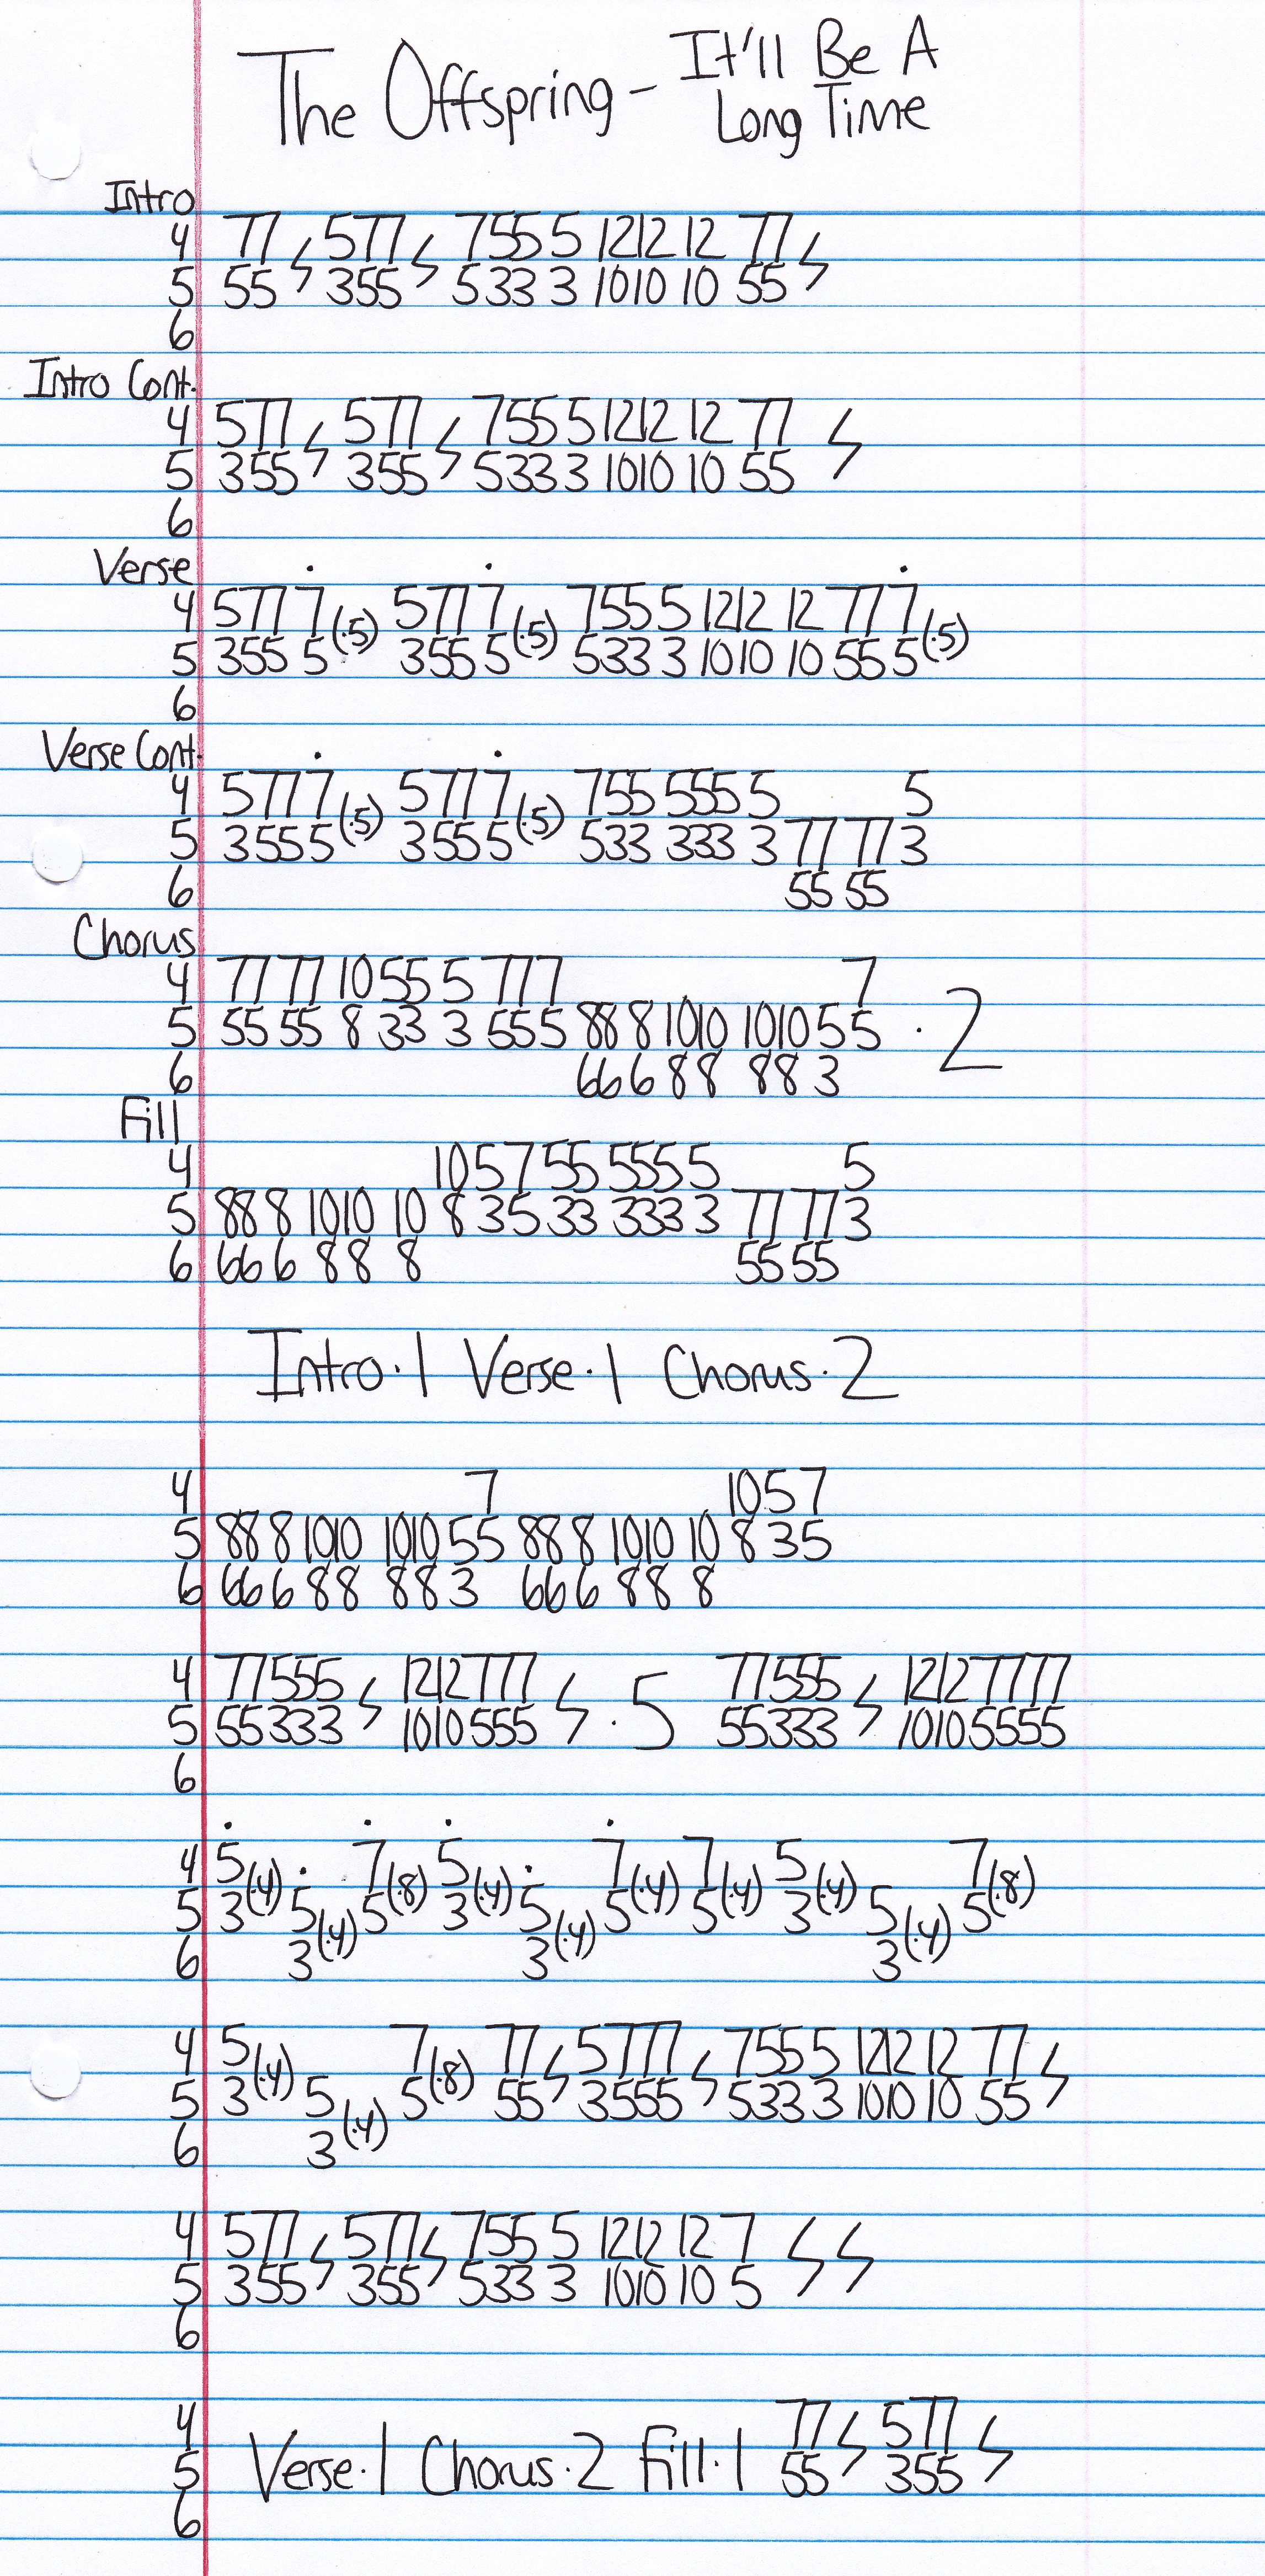 The Offspring - It'll Be A
Long Time
Intro
4 77 ϟ 577 ϟ 755 5 1212 12 77 ϟ
5 55 355 533 3 1010 10 55
6
Intro Cont.
4 577 ϟ 577 ϟ 755 5 1212 12 77 ϟ
5 355 355 533 3 1010 10 55
6
Verse
4 577 7(.5) 577 7(.5) 755 5 1212 12 77 7(.5)
5 355 5 355 5 533 3 1010 10 55 5
6
Verse Cont.
4 577 7(.5) 577 7(.5) 755 555 5 5
5 355 5 355 5 533 333 3 77 77 3
6 55 55
Chorus
4 77 77 10 55 5 777 7
5 55 55 8 33 3 555 88 8 1010 1010 5 5 · 2
6 66 6 88 88 3
Fill
4 10 5 7 55 555 5 5
5 88 8 1010 10 8 3 5 33 333 3 77 77 3
6 66 6 88 8 55 55
Intro · 1 Verse · 1 Chorus · 2
4 7 10 5 7
5 88 8 1010 1010 5 5 88 8 1010 10 8 3 5
6 66 6 88 88 3 66 6 88 8
4 77555 ϟ 1212777 ϟ · 5 77555 ϟ 12127777
5 55333 1010555 55333 10105555
6
4 5(.4) 7(.8) 5(.4) 7(.4) 7(.4) 5(.4) 7(.8)
5 3 5(.4) 5 3 5(.4) 5 5 3 5(.4) 5
6 3 3 3
4 5(.4) 7(.8) 77 ϟ 5777 ϟ 755 5 1212 12 77 ϟ
5 3 5(.4) 5 55 3555 533 3 1010 10 55
6 3
4 577 ϟ 577 ϟ 755 5 1212 12 7 ϟ ϟ
5 355 355 533 3 1010 10 5
6
4 77 ϟ 577 ϟ
5 Verse · 1 Chorus · 2 Fill · 1 55 355
6